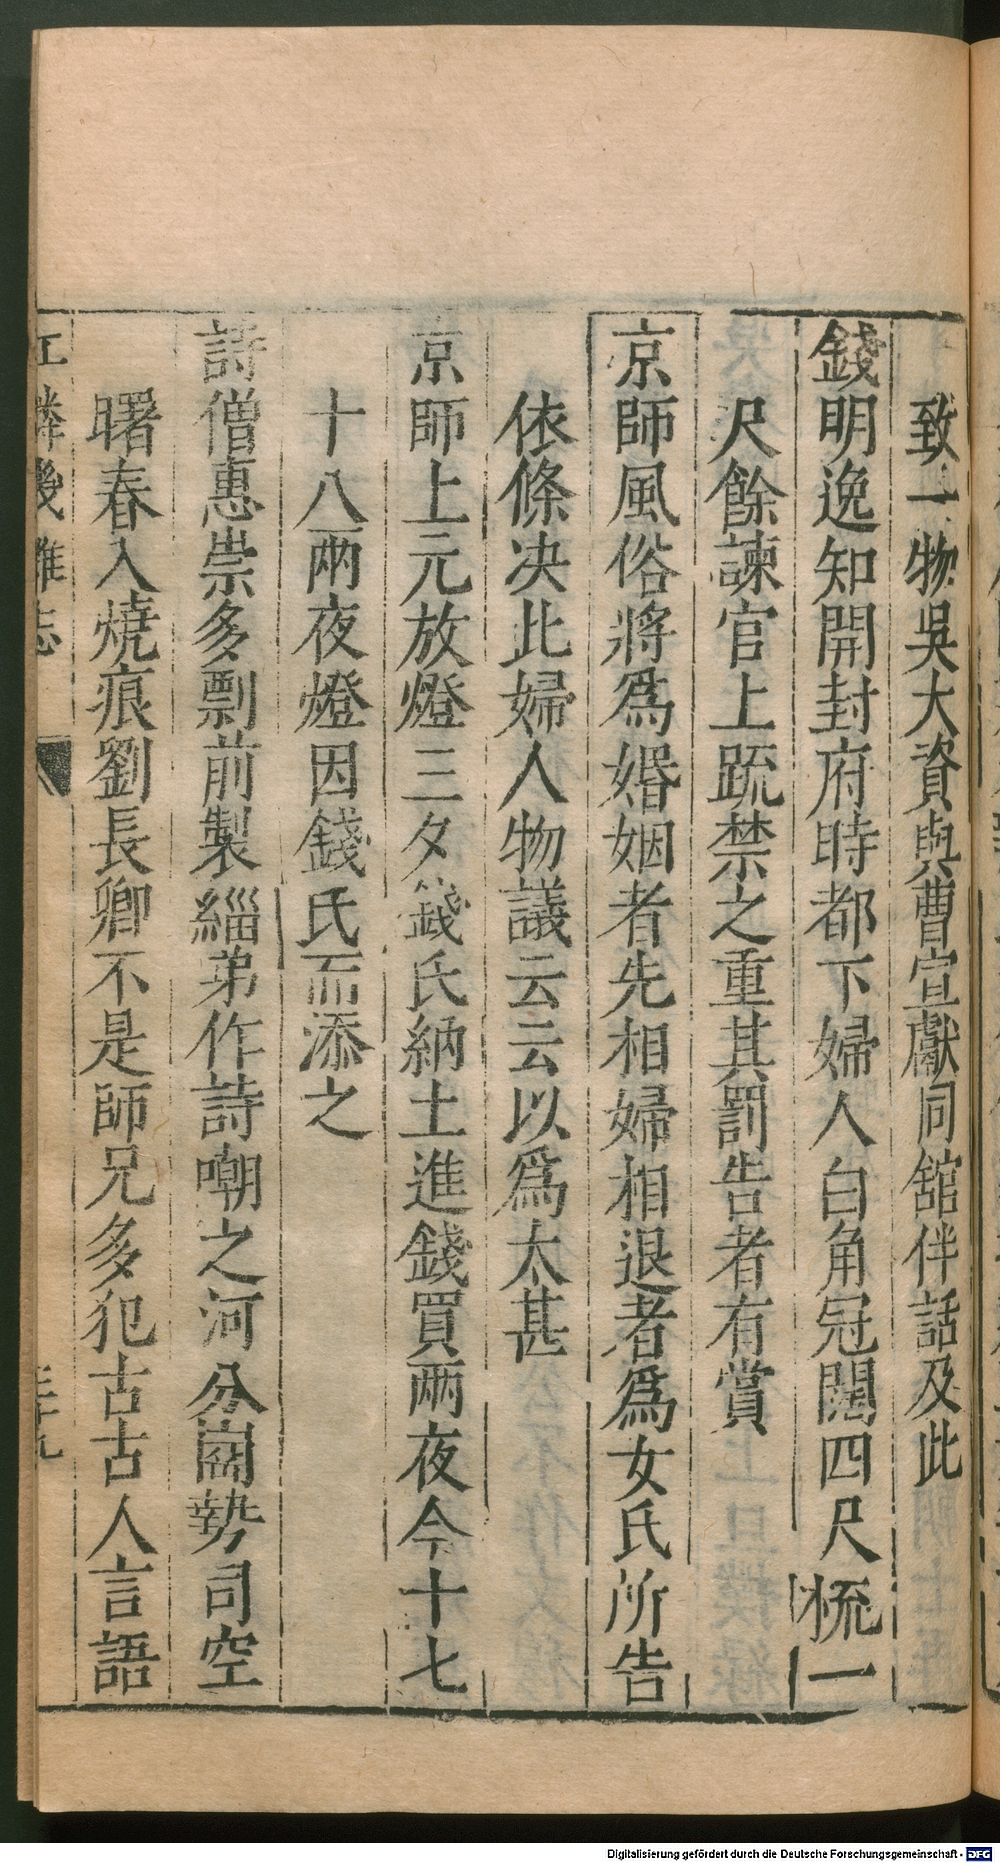 致一物吳大資與曹宣獻同舘伴話及此
錢明逸知開封府時都下婦人白角冠闊四尺梳一
尺餘諫官上䟽禁之重其罰告者有賞
京師風俗將爲婚姻者先相婦相退者爲女氏所告
依條决此婦人物議云云以爲太甚
京師上元放燈三夕錢氏納土進錢買兩夜今十七
十八兩夜燈因錢氏而添之
詩僧惠崇多剽前製緇弟作詩嘲之河分崗勢司空
曙春入燒痕劉長卿不是師兄多犯古古人言語
江隣幾雜志
三十九
Digitalisierung gefördert durch die Deutsche Forschungsgemeinschaft - DFG